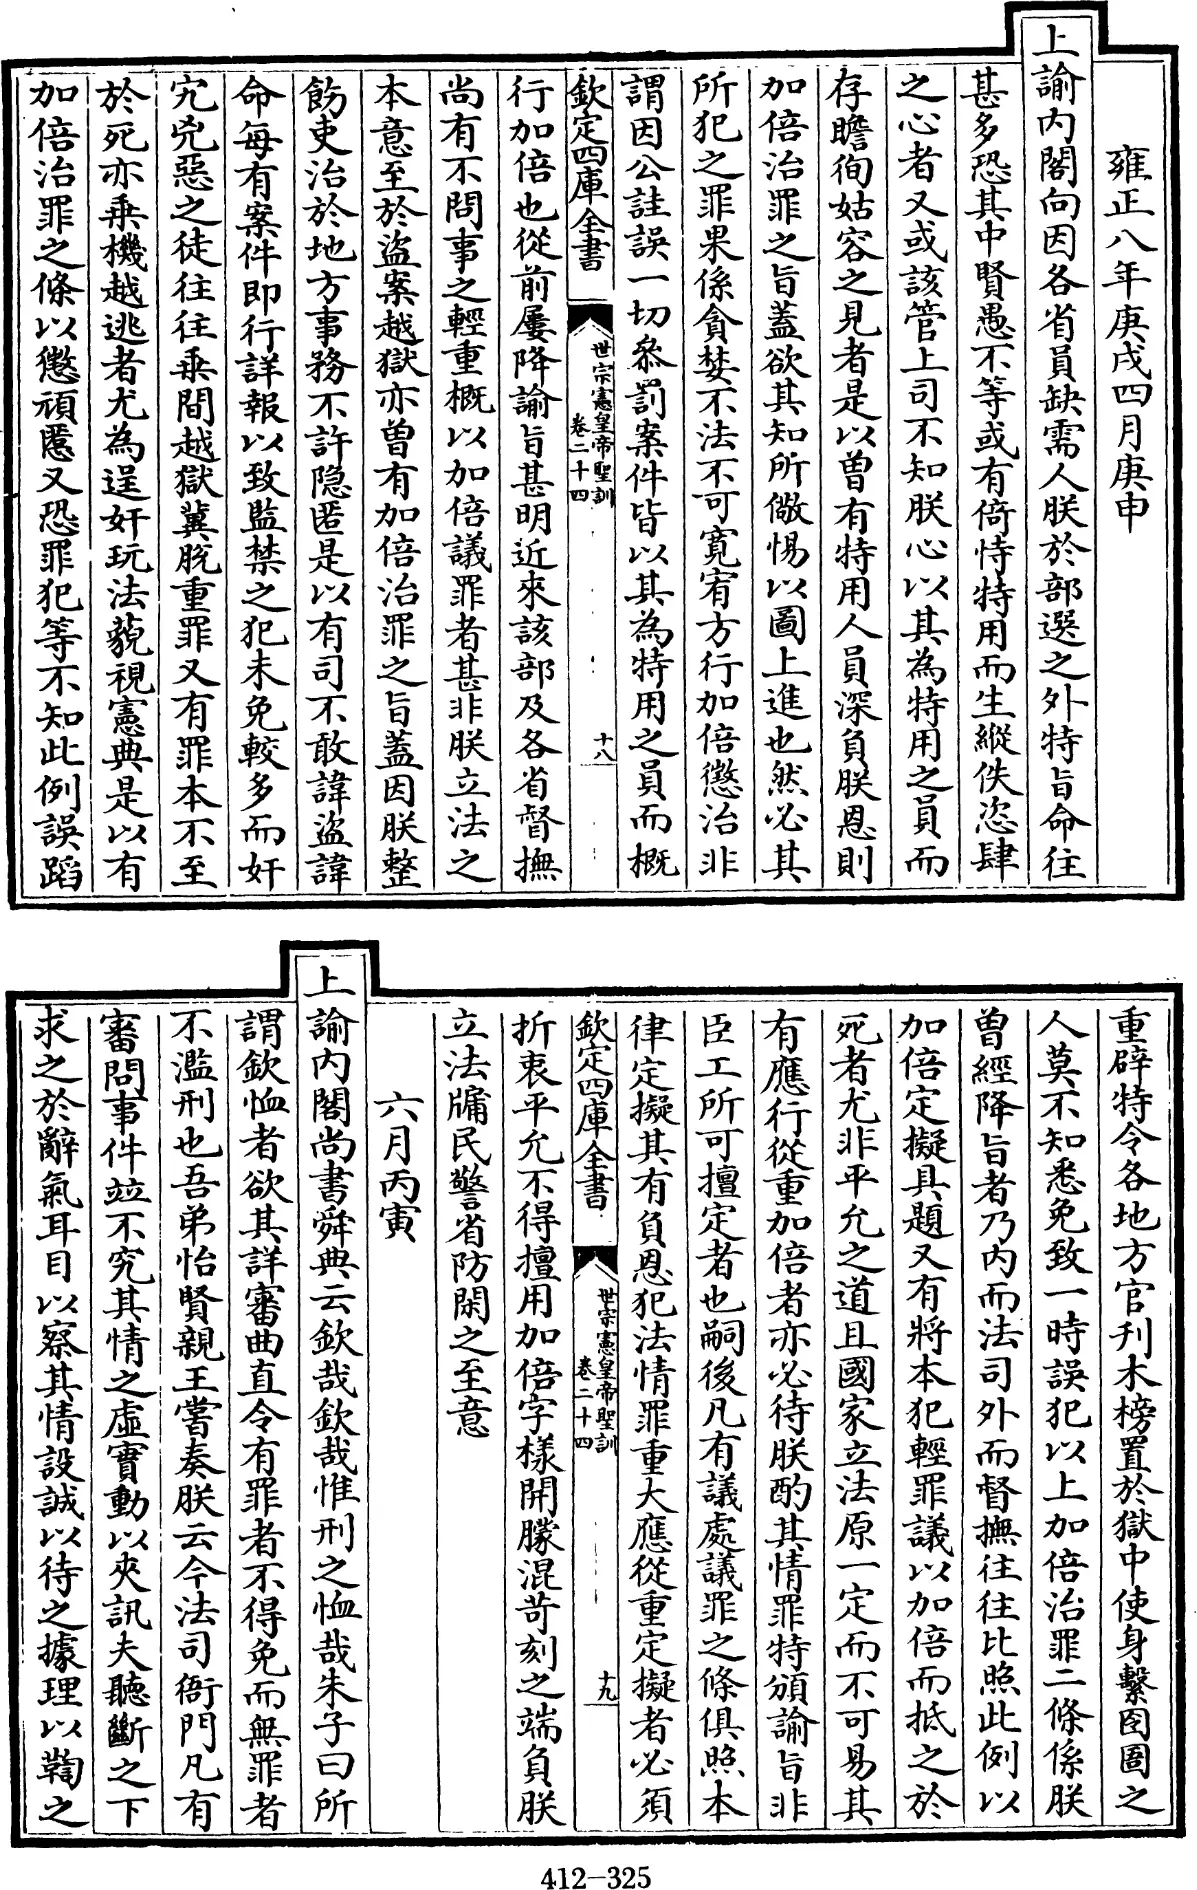 雍正八年庚戌四月庚申
上諭内閣向因各省員缺需人朕於部選之外特旨命往
甚多恐其中賢愚不等或有倚恃特用而生縱佚恣肆
之心者又或該管上司不知朕心以其為特用之員而
存瞻徇姑容之見者是以曽有特用人員深負朕恩則
加倍治罪之旨蓋欲其知所儆惕以圖上進也然必其
所犯之罪果係貪婪不法不可寛宥方行加倍懲治非
謂因公詿誤一切叅罰案件皆以其為特用之員而概
欽定四庫全書
世宗憲皇帝聖訓
卷二十四
十八
行加倍也從前屢降諭旨甚明近來該部及各省督撫
尚有不問事之輕重概以加倍議罪者甚非朕立法之
本意至於盜案越獄亦曽有加倍治罪之旨蓋因朕整
飭吏治於地方事務不許隠匿是以有司不敢諱盜諱
命每有案件即行詳報以致監禁之犯未免較多而奸
宄兇惡之徒往往乗間越獄冀脱重罪又有罪本不至
於死亦乗機越逃者尤為逞奸玩法藐視憲典是以有
加倍治罪之條以懲頑慝又恐罪犯等不知此例誤蹈
重辟特令各地方官刋木榜置於獄中使身繫囹圄之
人莫不知悉免致一時誤犯以上加倍治罪二條係朕
曽經降旨者乃内而法司外而督撫往往比照此例以
加倍定擬具題又有將本犯輕罪議以加倍而抵之於
死者尤非平允之道且國家立法原一定而不可易其
有應行從重加倍者亦必待朕酌其情罪特頒諭旨非
臣工所可擅定者也嗣後凡有議處議罪之條俱照本
律定擬其有負恩犯法情罪重大應從重定擬者必須
欽定四庫全書
世宗憲皇帝聖訓
卷二十四
十九
折衷平允不得擅用加倍字樣開朦混苛刻之端負朕
立法牖民警省防閑之至意
六月丙寅
上諭内閣尚書舜典云欽哉欽哉惟刑之恤哉朱子曰所
謂欽恤者欲其詳審曲直令有罪者不得免而無罪者
不濫刑也吾弟怡賢親王嘗奏朕云今法司衙門凡有
審問事件竝不究其情之虛實動以夾訊夫聽斷之下
求之於辭氣耳目以察其情設誠以待之據理以鞫之
412-325